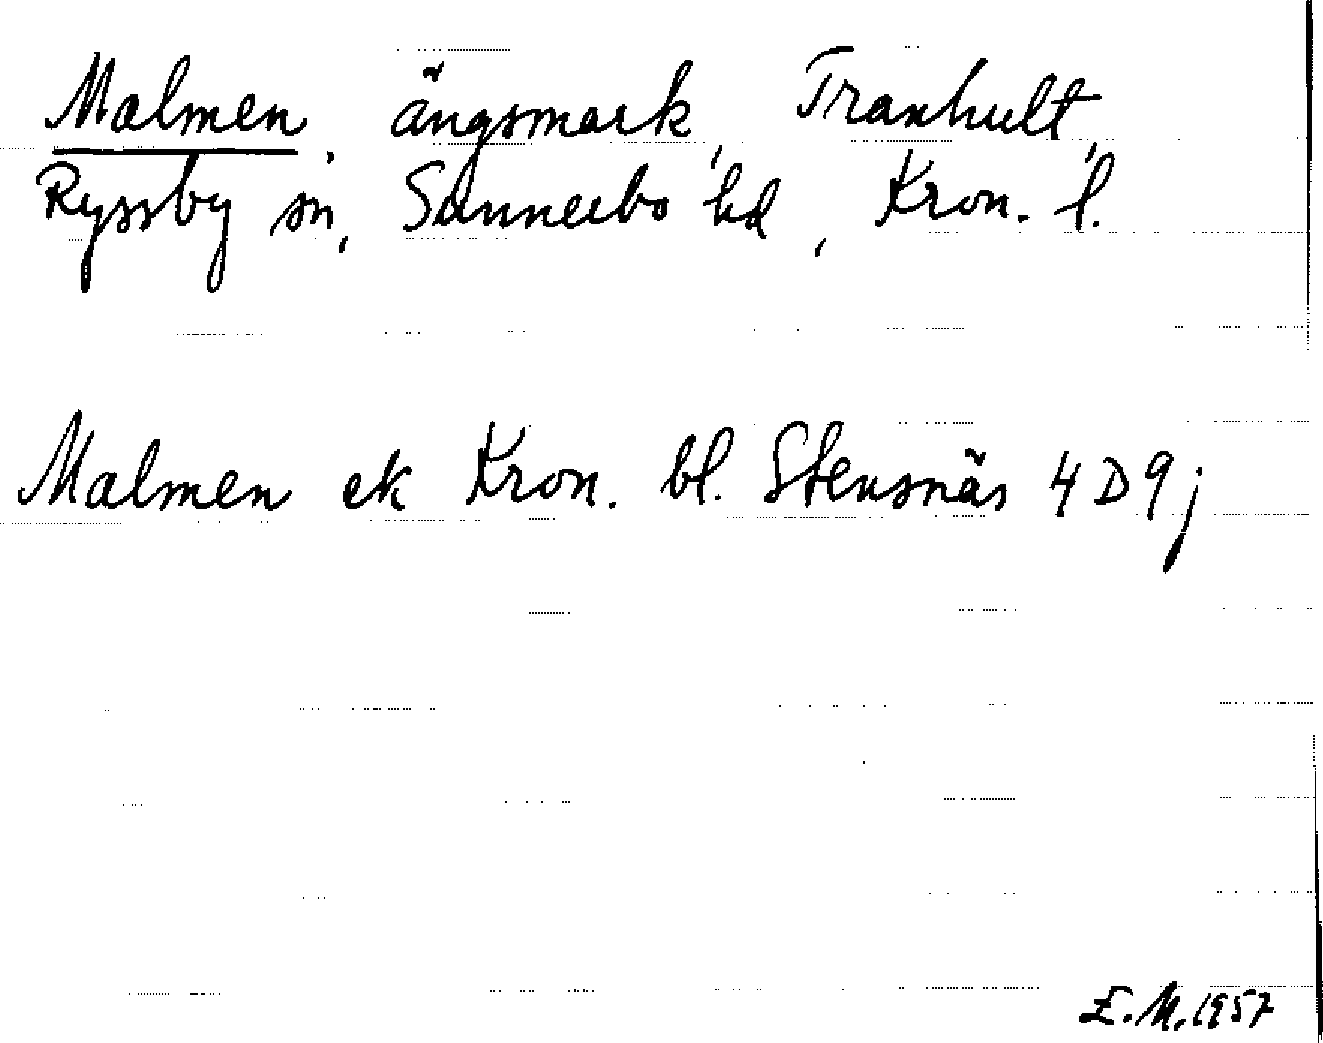 Malmen, ängsmark, Tranhult,
Ryssby sn, Sunnerbo hd, Kron. l.
Malmen ek Kron. bl. Stensnäs 4D9j
E.M. 1957